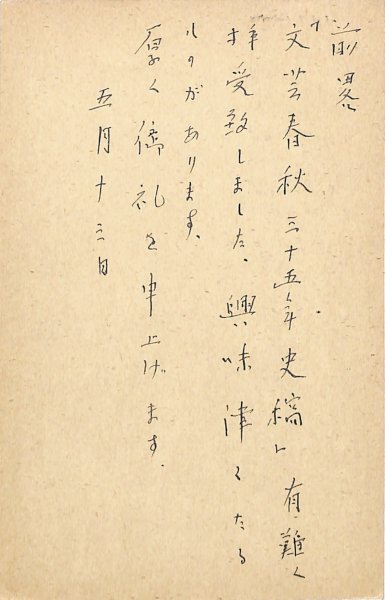 前畧
「文芸春秋三十五年史稿」有難く
拝受致しました、興味津々たる
ものがあります、
厚く御礼を申上げます.
五月十三日